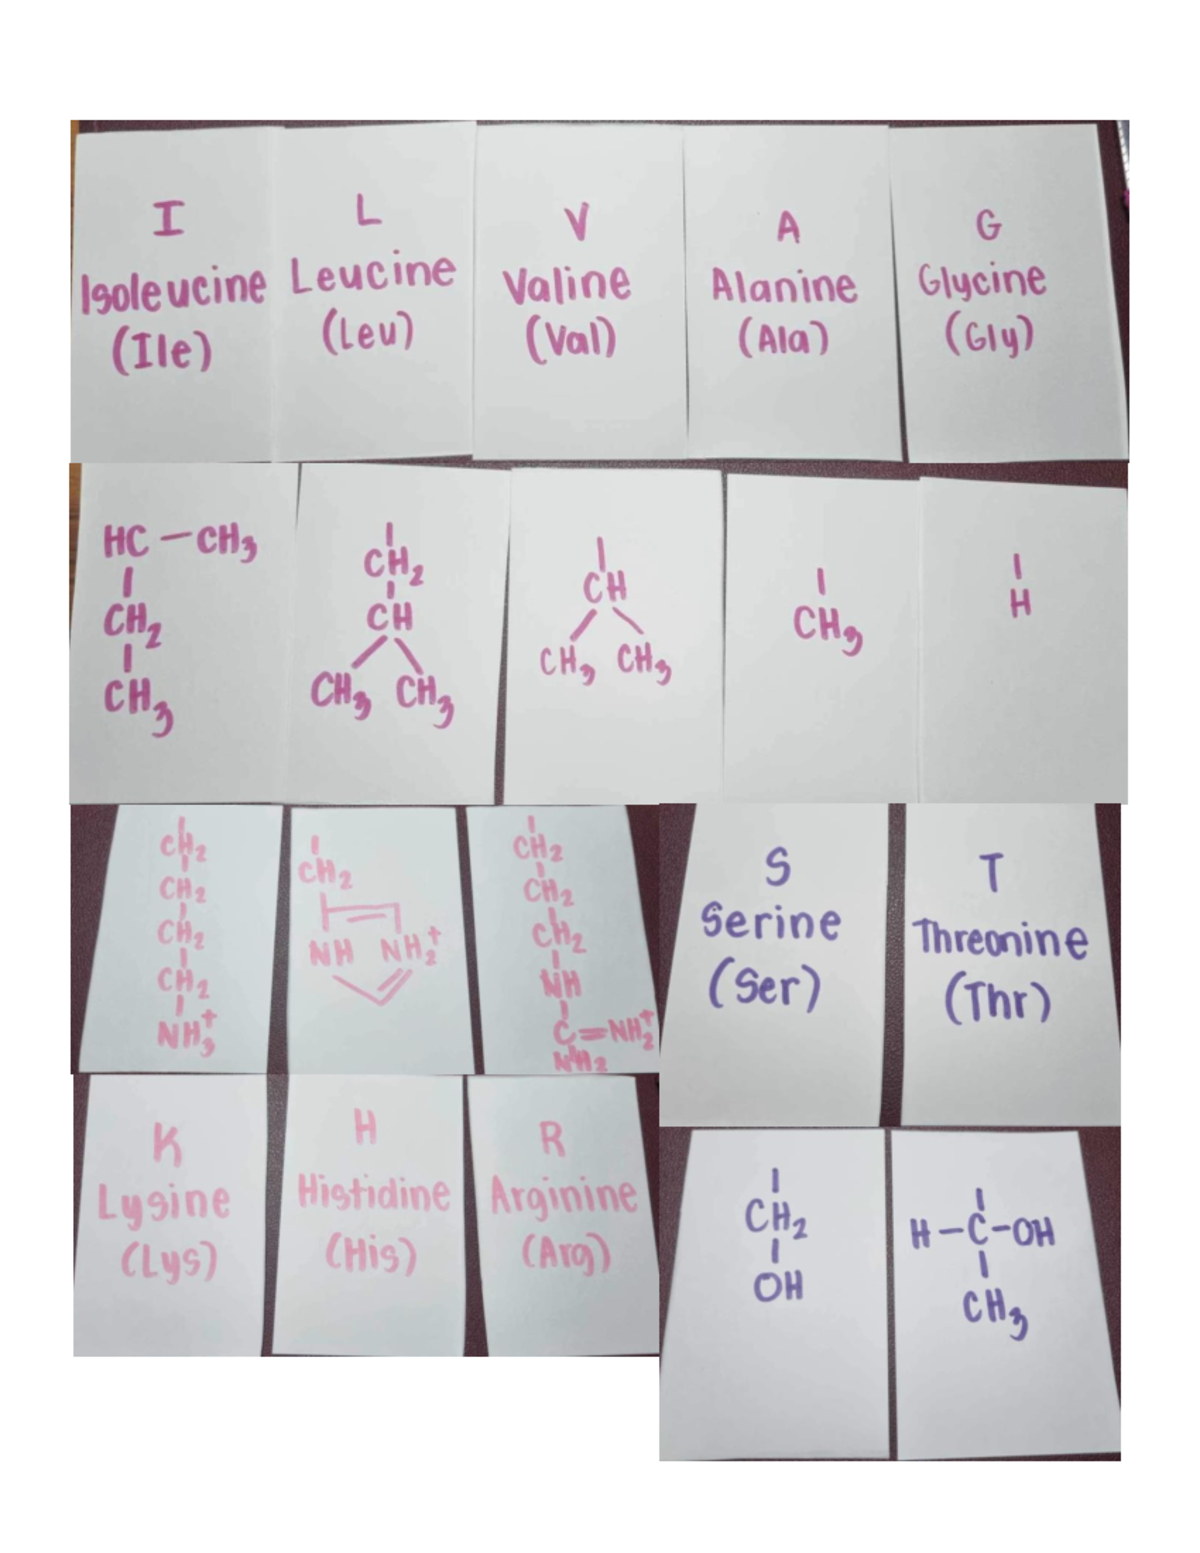 I
Isoleucine
(Ile)
L
Leucine
(Leu)
V
Valine
(Val)
A
Alanine
(Ala)
G
Glycine
(Gly)
HC — CH3
CH2
CH3
CH2
CH
CH3 CH3
CH
CH3 CH3
CH3
H
CH2
CH2
CH2
CH2
NH3+
CH2
NH NH2+
CH2
CH2
CH2
NH
C=NH2+
NH2
S
Serine
(Ser)
T
Threonine
(Thr)
K
Lysine
(Lys)
H
Histidine
(His)
R
Arginine
(Arg)
CH2
OH
H–C–OH
CH3